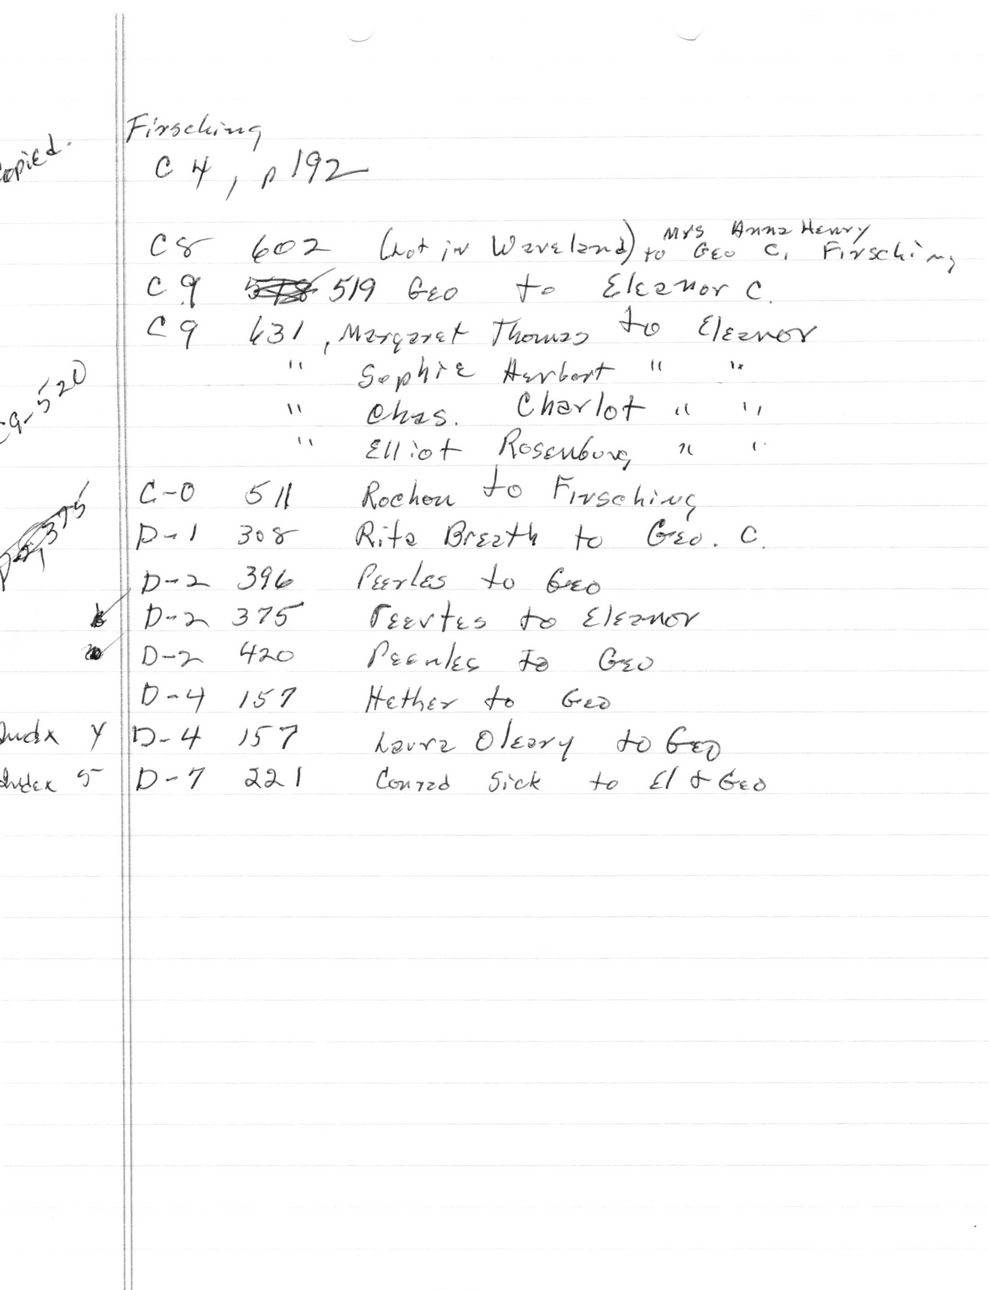 Copied.
Firsching
C 4, p 192
C8 602 (not in Waveland) Mrs Anna Henry to Geo C. Firsching
C 9 519 Geo to Eleanor C.
C 9 631, Margaret Thomas to Eleanor
" Sophie Herbert " "
C9-520
" Chas. Charlot " "
" Elliot Rosenburg " "
C-0 511 Rochon to Firsching
D-1 308 Rita Breath to Geo. C.
D-2 396 Peerles to Geo
D-2 375 Peertes to Eleanor
D-2 420 Peerles to Geo
D-4 157 Hether to Geo
Index Y D-4 157 Laura Oleary to Geo
Index 5 D-7 221 Conrad Sick to El & Geo